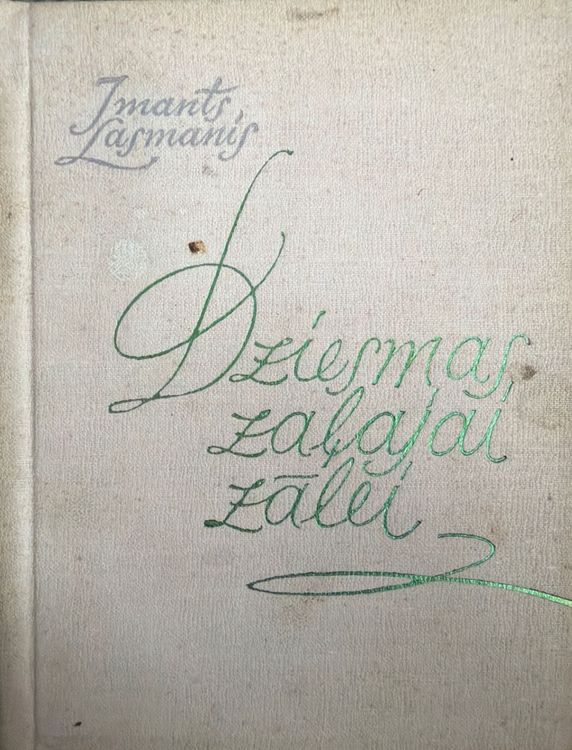 Imants
Lasmanis
Dziesmas
zaļajai
zālei